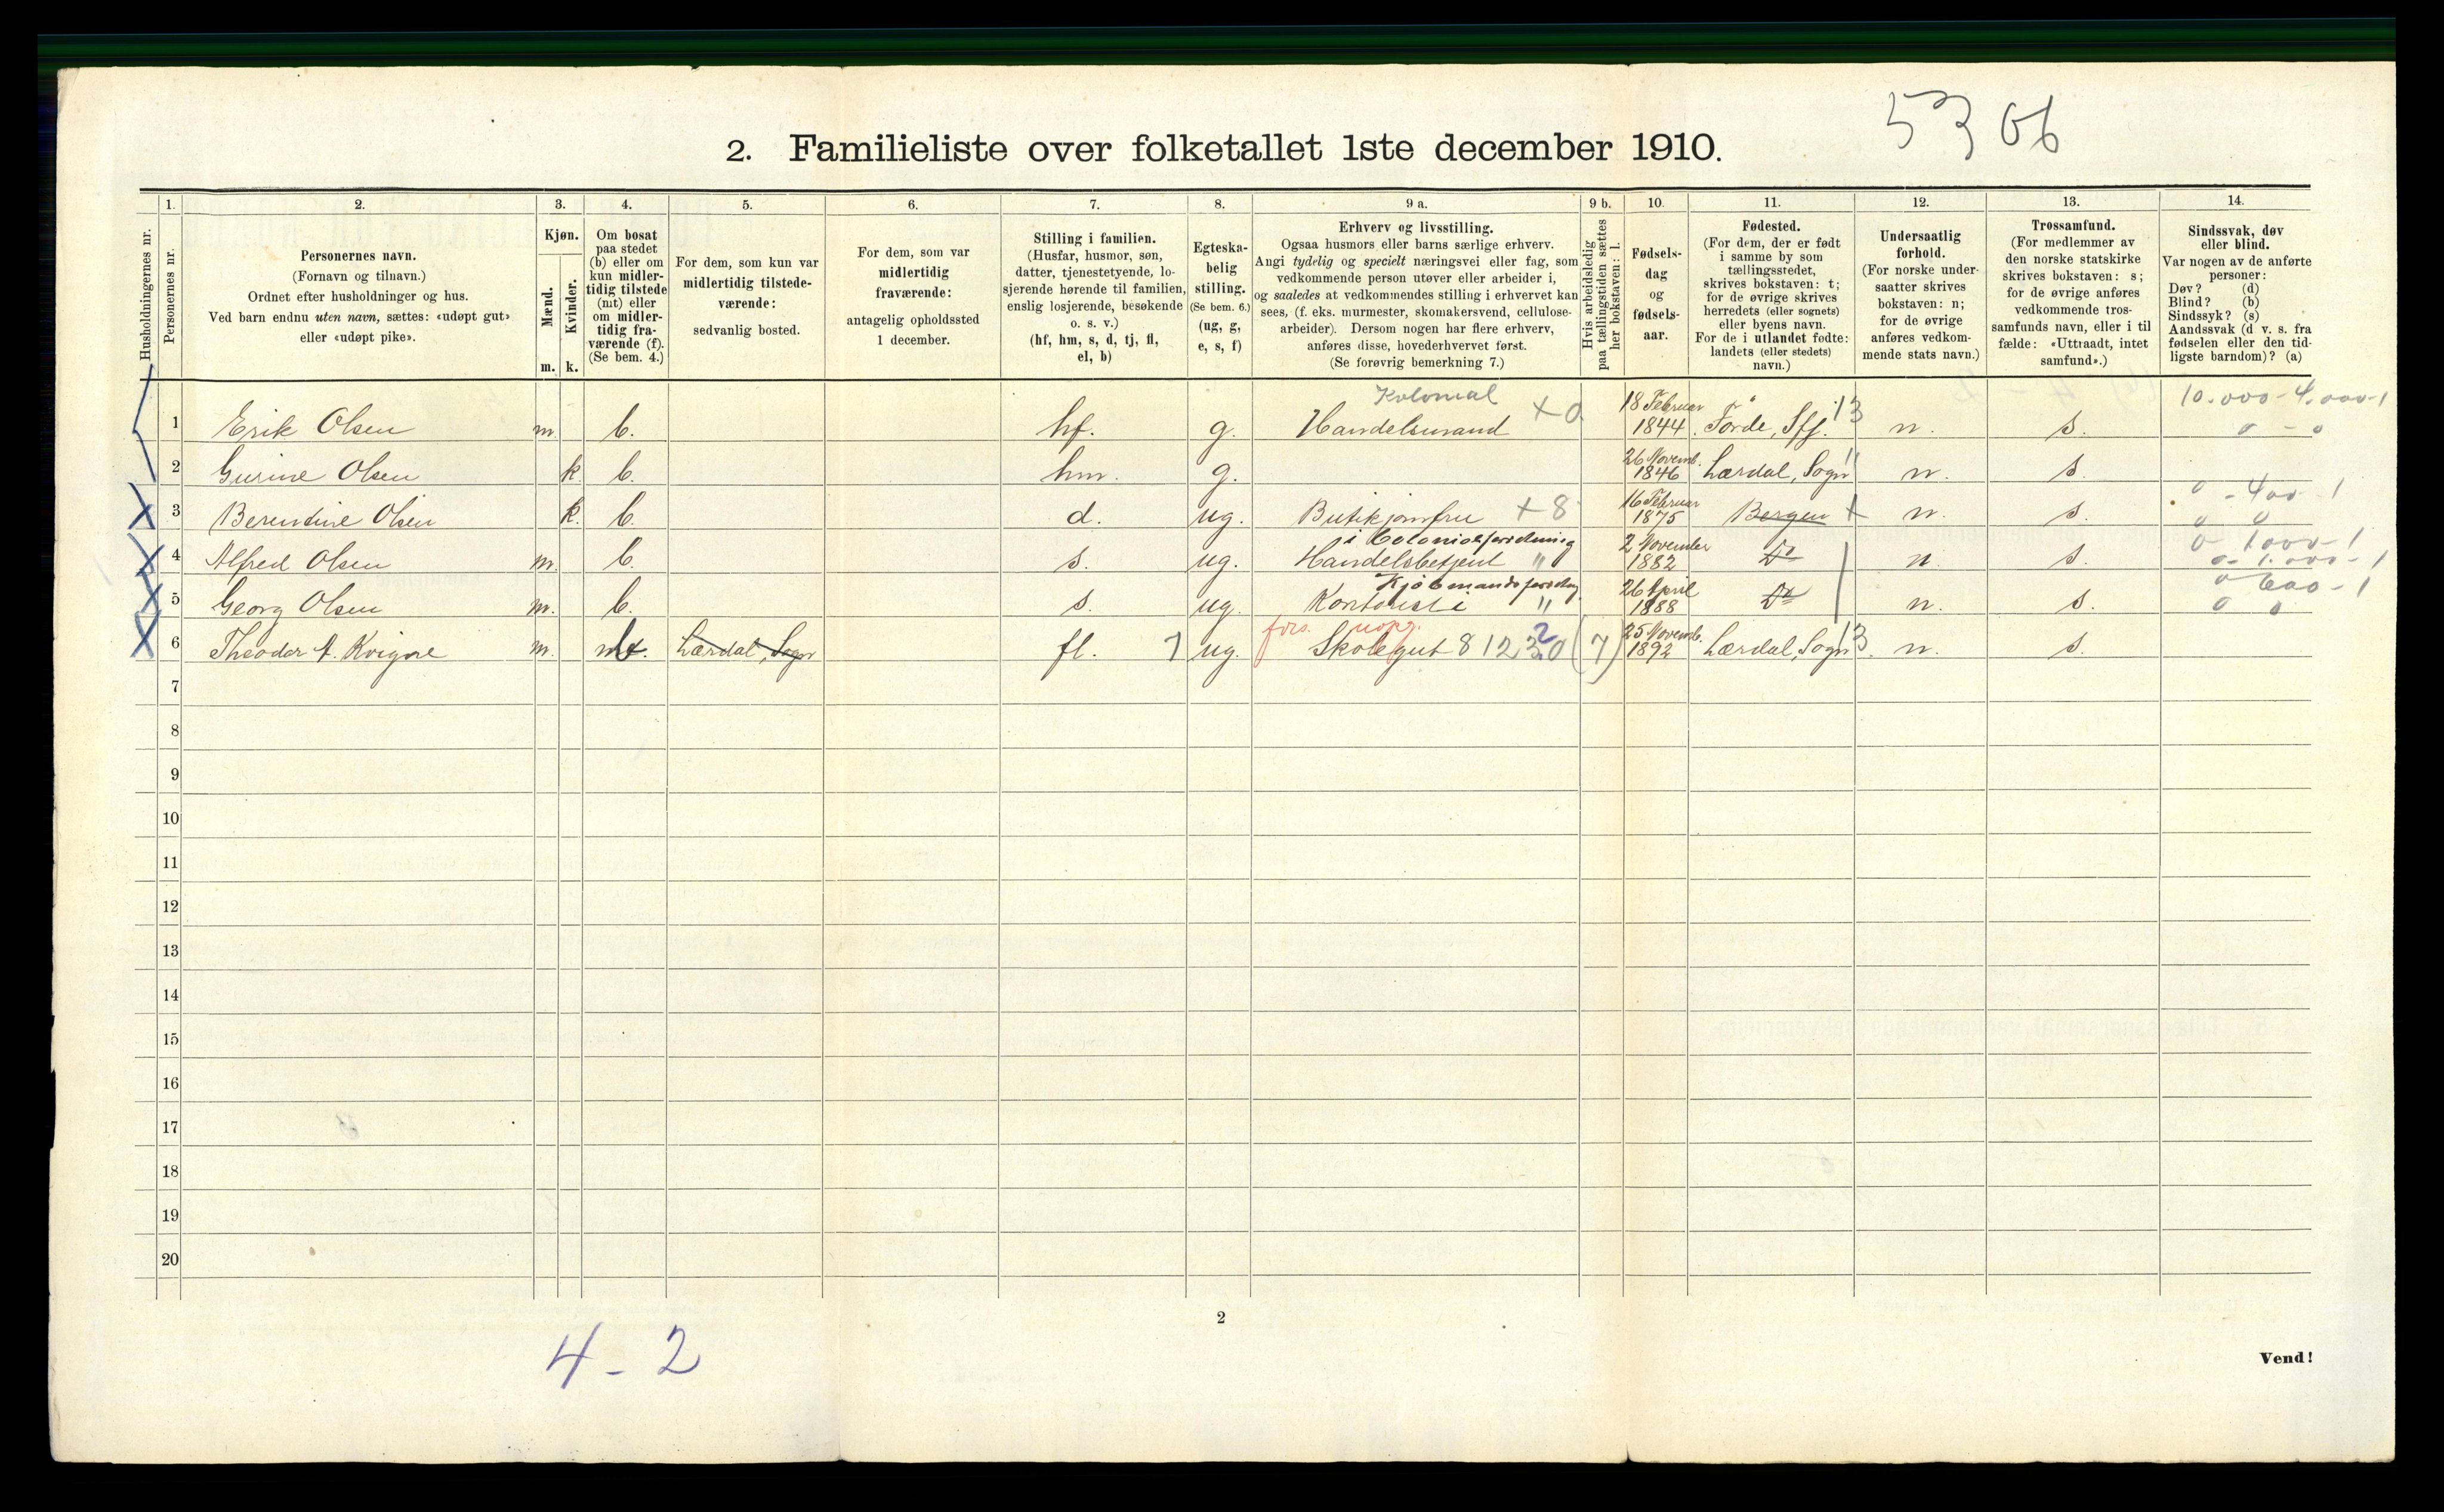 5306
2. Familieliste over folketallet 1ste december 1910.
Husholdningernes nr.
1.
Personernes nr.
2.
Personernes navn.
(Fornavn og tilnavn.)
Ordnet efter husholdninger og hus.
Ved barn endnu uten navn, sættes: «udøpt gut»
eller «udøpt pike».
3.
Kjøn.
Mænd.
Kvinder.
m. k.
4.
Om bosat
paa stedet
(b) eller om
kun midler-
tidig tilstede
(mt) eller
om midler-
tidig fra-
værende (f).
(Se bem. 4.)
5.
For dem, som kun var
midlertidig tilstede-
værende:
sedvanlig bosted.
6.
For dem, som var
midlertidig
fraværende:
antagelig opholdssted
1 december.
7.
Stilling i familien.
(Husfar, husmor, søn,
datter, tjenestetyende, lo-
sjerende hørende til familien,
enslig losjerende, besøkende
o. s. v.)
(hf, hm, s, d, tj, fl,
el, b)
8.
Egteska-
belig
stilling.
(Se bem. 6.)
(ug, g,
e, s, f)
9 a.
Erhverv og livsstilling.
Ogsaa husmors eller barns særlige erhverv.
Angi tydelig og specielt næringsvei eller fag, som
vedkommende person utøver eller arbeider i,
og saaledes at vedkommendes stilling i erhvervet kan
sees, (f. eks. murmester, skomakersvend, cellulose-
arbeider). Dersom nogen har flere erhverv,
anføres disse, hovederhvervet først.
(Se forøvrig bemerkning 7.)
9 b.
Hvis arbeidsledig
paa tællingstiden sættes
her bokstaven: l.
10.
Fødsels-
dag
og
fødsels-
aar.
11.
Fødested.
(For dem, der er født
i samme by som
tællingsstedet,
skrives bokstaven: t;
for de øvrige skrives
herredets (eller sognets)
eller byens navn.
For de i utlandet fødte:
landets (eller stedets)
navn.)
12.
Undersaatlig
forhold.
(For norske under-
saatter skrives
bokstaven: n;
for de øvrige
anføres vedkom-
mende stats navn.)
13.
Trossamfund.
(For medlemmer av
den norske statskirke
skrives bokstaven: s;
for de øvrige anføres
vedkommende tros-
samfunds navn, eller i til-
fælde: «Uttraadt, intet
samfund».)
14.
Sindssvak, døv
eller blind.
Var nogen av de anførte
personer:
Døv? (d)
Blind? (b)
Sindssyk? (s)
Aandssvak (d v. s. fra
fødselen eller den tid-
ligste barndom)? (a)
Kolonial 10.000 - 4.000-1
1 Erik Olsen m. b. hf. g. Handelsmand +0 18 Februar 1844 Førde, Sfj. 13 n. s. 0 - 0
2 Gurine Olsen k. b. hm. g. 26 Novemb. 1846 Lærdal, Sogn 11 n. s.
0 - 400 - 1
3 Berendine Olsen k. b. d. ug. Butikjomfru +8 16 Februar 1875 Bergen + n. s. 0 0
i Colonialforretning 0 1000-1
4 Alfred Olsen m. b. s. ug. Handelsbetjent " 2 November 1882 Do n. s. 0-1.000-1
Kjøbmandsforretng 0 600-1
5 Georg Olsen m. b. s. ug. Kontorist i " 26 April 1888 Do n. s. 0 0
fors. uopg.
6 Theodor A. Kvigne m. mt. Lærdal, Sogn fl. 7 ug. Skolegut 8 12 3 2 0 (7) 25 Novemb. 1892 Lærdal, Sogn 13. n. s.
7
8
9
10
11
12
13
14
15
16
17
18
19
20
2
4 - 2
Vend!